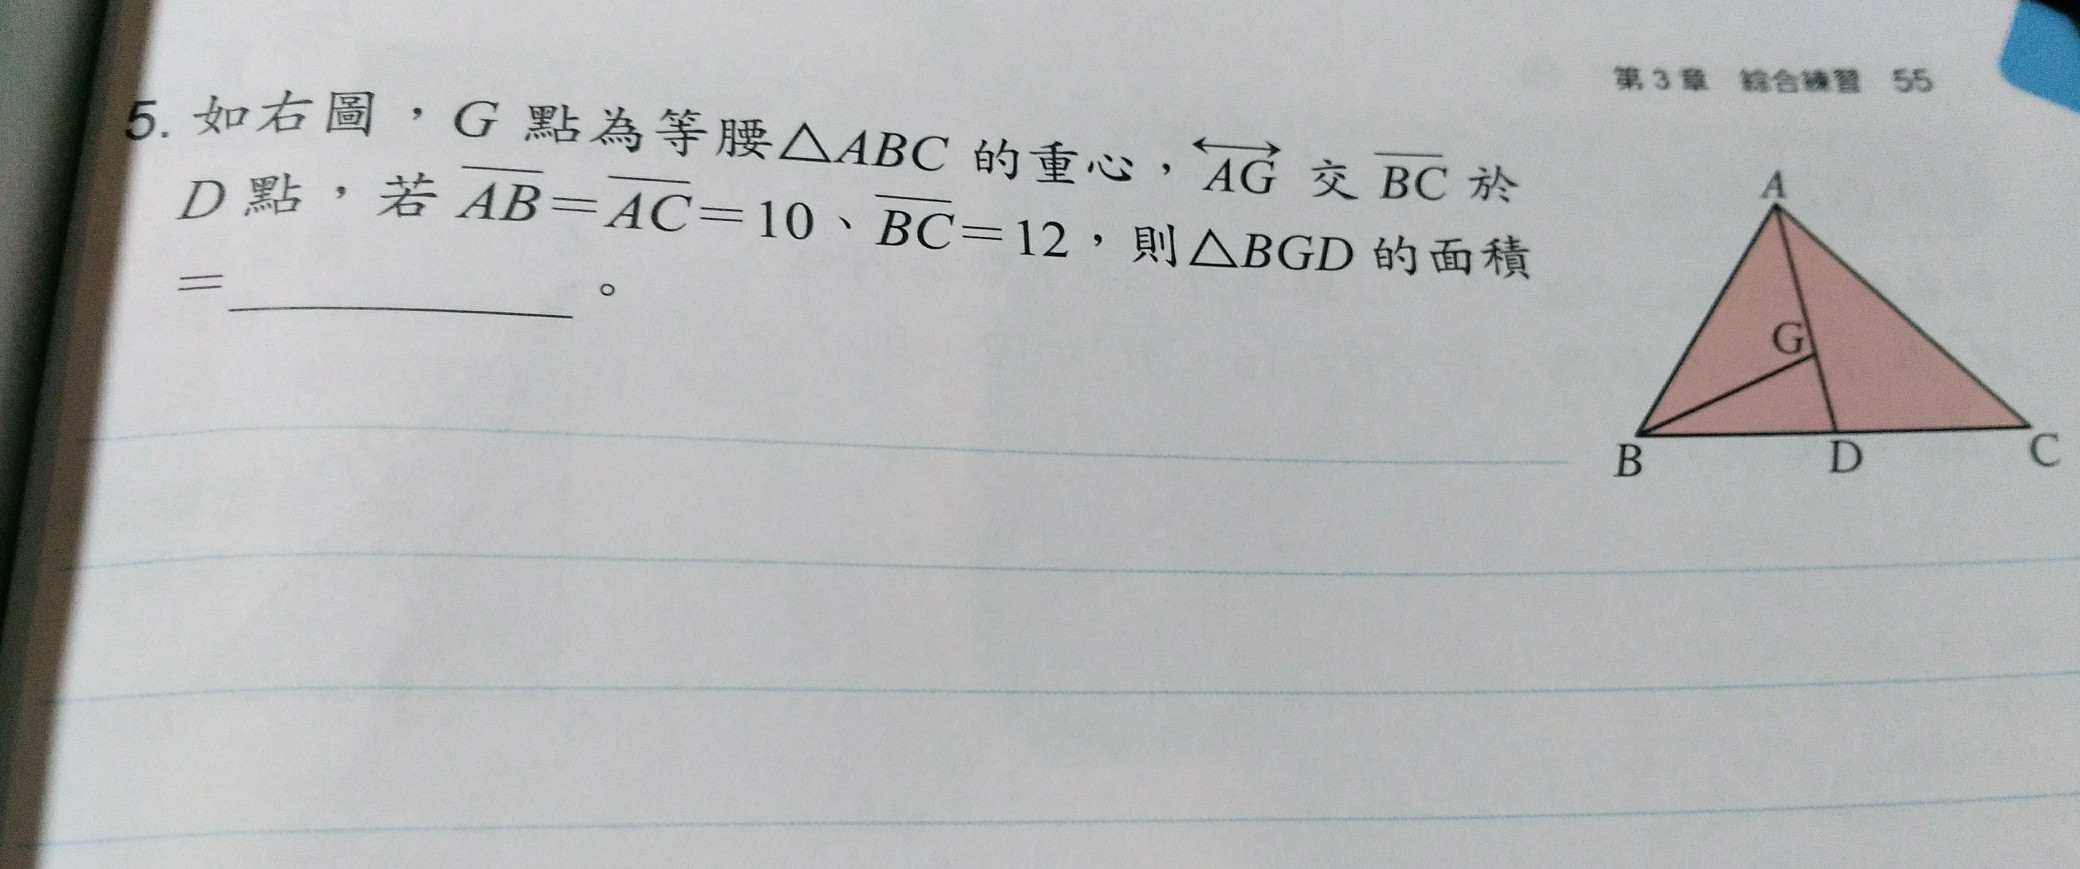 第 3 章 綜合練習 55
5. 如右圖，G 點為等腰△ABC 的重心，AG 交 BC 於
D 點，若 AB＝AC＝10、BC＝12，則△BGD 的面積
＝__________。
A
G
B
D
C